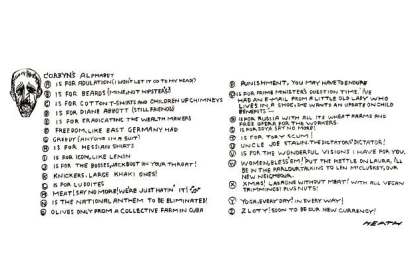 CORBYN'S ALPHABET
A IS FOR ADULATION (I WON'T LET IT GO TO MY HEAD)
B IS FOR BEARDS (MINE, NOT HIPSTER'S)
C IS FOR COTTON T-SHIRTS AND CHILDREN UP CHIMNEYS
D IS FOR DIANE ABBOTT (STILL FRIENDS)
E IS FOR ERADICATING THE WEALTH MAKERS
F FREEDOM, LIKE EAST GERMANY HAD
G GREEDY (ANYONE IN A SUIT)
H IS FOR HESSIAN SHIRTS
I IS ICON, LIKE LENIN
J IS FOR THE BOSSES, JACKBOOT ON YOUR THROAT!
K KNICKERS. LARGE KHAKI ONES!
L IS FOR LUDDITES
M MEAT! SAY NO MORE! WE'RE JUST HATIN' IT!
N IS THE NATIONAL ANTHEM TO BE ELIMINATED!
O OLIVES ONLY FROM A COLLECTIVE FARM IN CUBA
P PUNISHMENT, YOU MAY HAVE TO ENDURE
Q IS FOR PRIME MINISTER'S QUESTION TIME. I'VE
HAD AN E-MAIL FROM A LITTLE OLD LADY WHO
LIVES IN A SHOE, SHE WANTS AN UPDATE ON CHILD
BENEFITS
R IS FOR RUSSIA WITH ALL ITS WHEAT FARMS AND
FREE OPERA FOR THE WORKERS.
S IS FOR SOYA. SAY NO MORE!
T IS FOR TORY SCUM!
U UNCLE JOE STALIN. THE DICTATOR'S DICTATOR!
V IS FOR THE WONDERFUL VISIONS I HAVE FOR YOU.
W WOMEN, BLESS 'EM! PUT THE KETTLE ON LAURA, I'LL
BE IN THE PARLOUR TAKING TO LEN MCCLUSKEY, OUR
NEW NEIGHBOUR.
X XMAS! LASAGNE WITHOUT MEAT! WITH ALL VEGAN
TRIMMINGS! PLUS NUTS!
Y YOGA, EVERY DAY! IN EVERY WAY!
Z ZLOTY! SOON TO BE OUR NEW CURRENCY!
HEATH